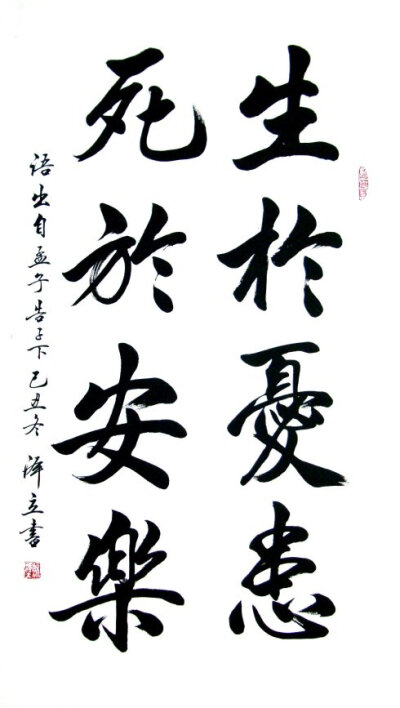 生於憂患
死於安樂
语出自孟子告子下己丑冬泽立書